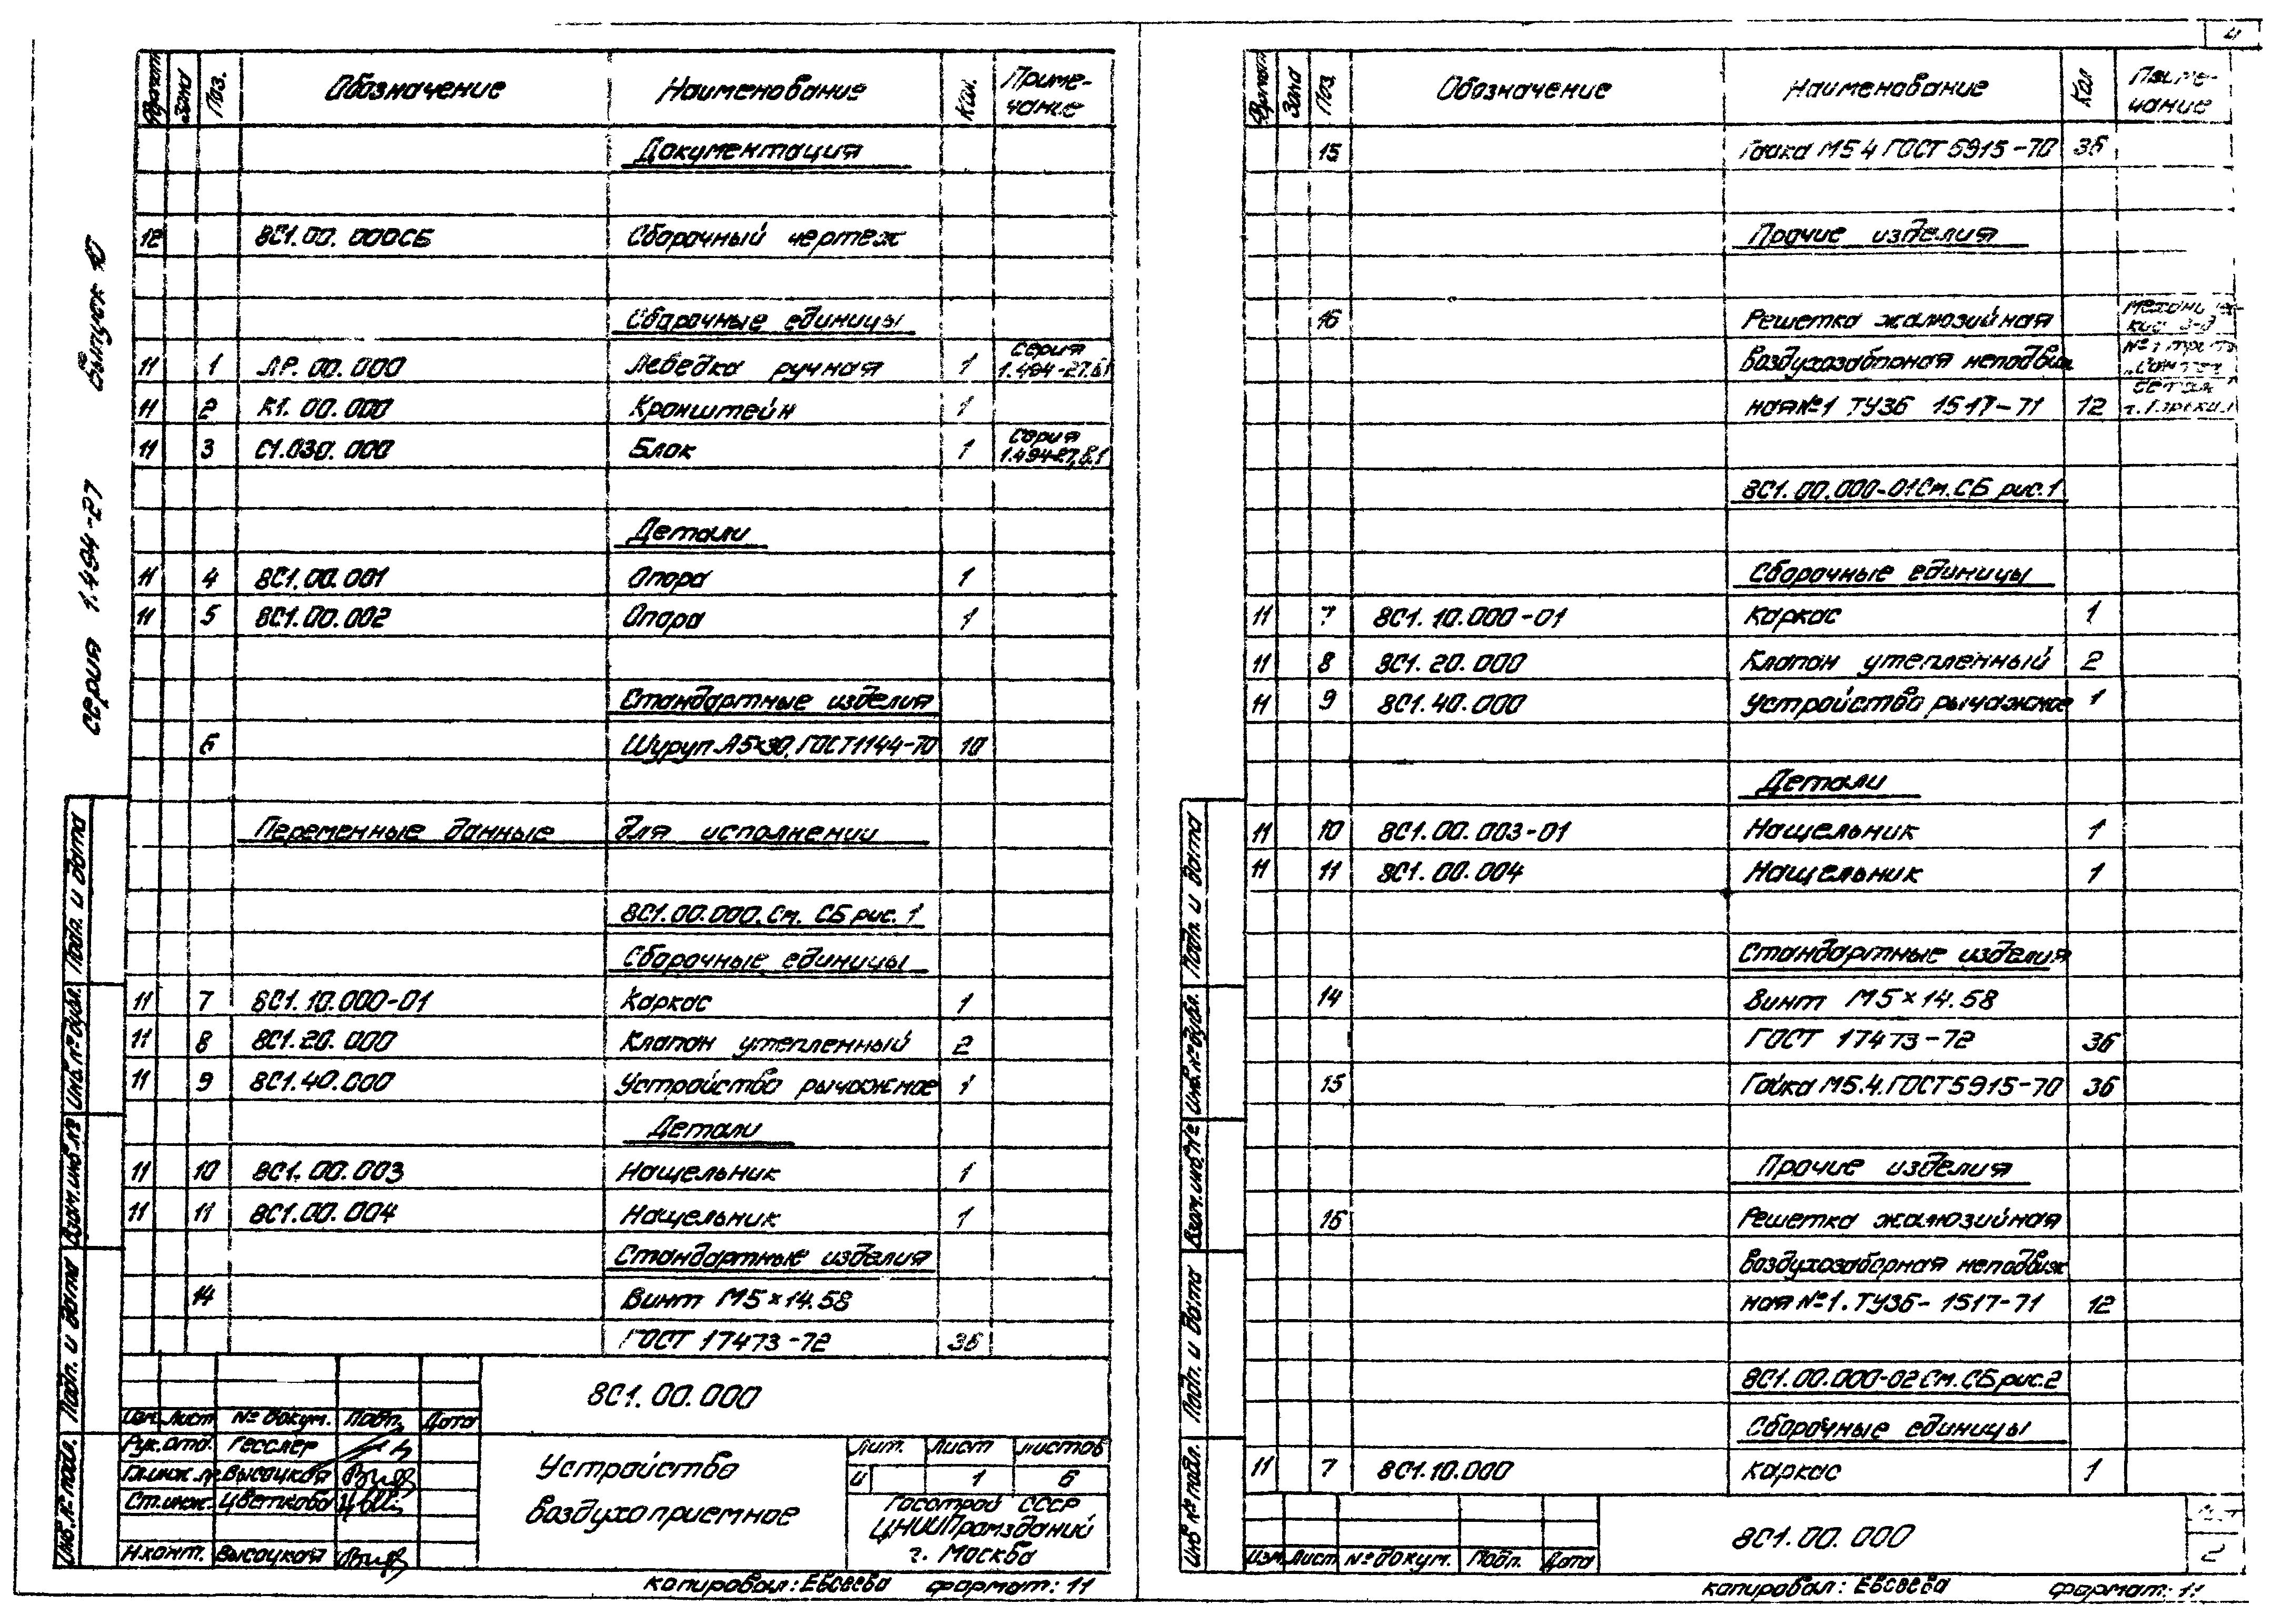 4
серия 1.494-27 Выпуск 10
Формат Зона Поз. Обозначение Наименование Кол. Приме-
чание
Документация
12 8С1.00.000СБ Сборочный чертеж
Сборочные единицы
11 1 ЛР.00.000 Лебедка ручная 1 Серия
1.494-27.В1
11 2 К1.00.000 Кронштейн 1
11 3 С1.030.000 Блок 1 Серия
1.494-27,В.1
Детали
11 4 8С1.00.001 Опора 1
11 5 8С1.00.002 Опора 1
Стандартные изделия
6 Шуруп А5×30, ГОСТ1144-70 10
Переменные данные для исполнении
8С1.00.000. См. СБ рис. 1
Сборочные единицы
11 7 8С1.10.000-01 Каркас 1
11 8 8С1.20.000 Клапан утепленный 2
11 9 8С1.40.000 Устройство рычажное 1
Детали
11 10 8С1.00.003 Нащельник 1
11 11 8С1.00.004 Нащельник 1
Стандартные изделия
14 Винт М5×14.58
ГОСТ 17473-72 36
Подп. и дата
Инв.№дубл.
Взам.инв.№
Подп. и дата
Инв.№подл.
8С1.00.000
Изм. Лист № докум. Подп. Дата
Рук.отд. Гесслер
Гл.инж.пр. Высоцкая
Ст.инж. Цветкова
Н.конт. Высоцкая
Устройство
воздухоприемное
Лит. Лист Листов
И 1 6
Госстрой СССР
ЦНИИПромзданий
г. Москва
копировал: Евсеева формат: 11
Формат Зона Поз. Обозначение Наименование Кол Приме-
чание
15 Гайка М5.4 ГОСТ 5915-70 36
Прочие изделия
16 Решетка жалюзийная
воздухозаборная неподвиж
ная№1 ТУ36 1517-71 12
8С1.00.000-01 См. СБ рис.1
Сборочные единицы
11 7 8С1.10.000-01 Каркас 1
11 8 8С1.20.000 Клапан утепленный 2
11 9 8С1.40.000 Устройство рычажное 1
Детали
11 10 8С1.00.003-01 Нащельник 1
11 11 8С1.00.004 Нащельник 1
Стандартные изделия
14 Винт М5×14.58
ГОСТ 17473-72 36
15 Гайка М5.4.ГОСТ5915-70 36
Прочие изделия
16 Решетка жалюзийная
воздухозаборная неподвиж
ная №1.ТУ36-1517-71 12
8С1.00.000-02 См. СБ рис.2
Сборочные единицы
11 7 8С1.10.000 Каркас 1
Подп. и дата
Инв.№дубл.
Взам.инв.№
Подп. и дата
Инв №подл.
Изм. Лист № докум. Подп. Дата
8С1.00.000
Лист
2
копировал: Евсеева формат: 11